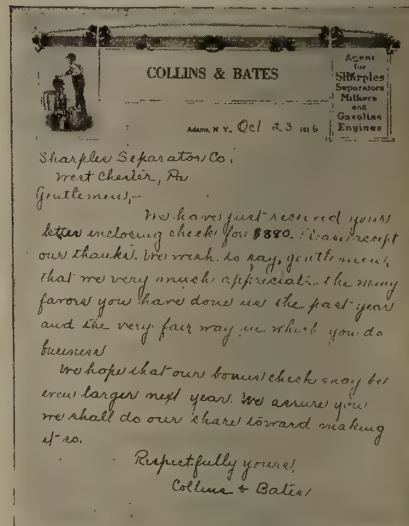 COLLINS & BATES
Agent
for
Sharples
Separators
Milkers
and
Gasoline
Engines
Adams, N. Y., Oct 23 1916
Sharples Separator Co.
West Chester, Pa
Gentlemen,-
We have just received yours
letter enclosing check for $880. Please accept
our thanks. We wish to say, gentlemen,
that we very much appreciate the many
favors you have done us the past year
and the very fair way in which you do
business
We hope that our bonus check may be
even larger next year. We assure you
we shall do our share toward making
it so.
Respectfully yours,
Collins & Bates